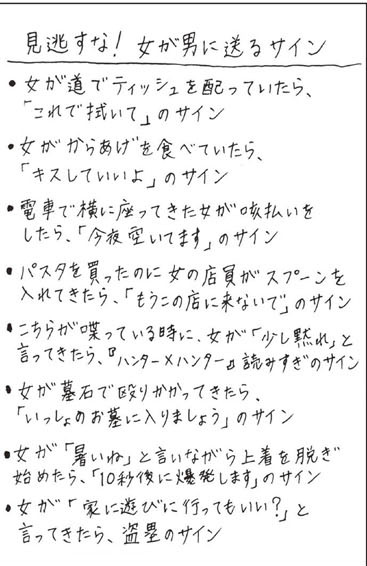 見逃すな! 女が男に送るサイン
• 女が道でティッシュを配っていたら、
「これで拭いて」のサイン
• 女がからあげを食べていたら、
「キスしていいよ」のサイン
• 電車で横に座ってきた女が咳払いを
したら、「今夜空いてます」のサイン
• パスタを買ったのに女の店員がスプーンを
入れてきたら、「もうこの店に来ないで」のサイン
• こちらが喋っている時に、女が「少し黙れ」と
言ってきたら、『ハンター×ハンター』読みすぎのサイン
• 女が墓石で殴りかかってきたら、
「いっしょのお墓に入りましょう」のサイン
• 女が「暑いね」と言いながら上着を脱ぎ
始めたら、「10秒後に爆発します」のサイン
• 女が「家に遊びに行ってもいい?」と
言ってきたら、盗塁のサイン